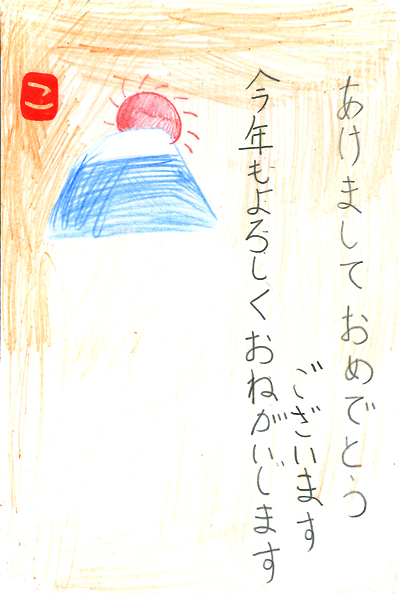 あけましておめでとう
ございます
今年もよろしくおねがいします
こ